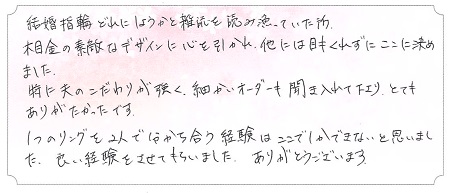 結婚指輪どれにしようかと雑誌を読み漁っていた所、
木目金の素敵なデザインに心を引かれ、他には目もくれずにここに決め
ました。
特に夫のこだわりが強く、細かいオーダーも聞き入れて下さり、とても
ありがたかったです。
1つのリングを2人で分かち合う経験はここでしかできないと思いまし
た。良い経験をさせてもらいました。ありがとうございます。